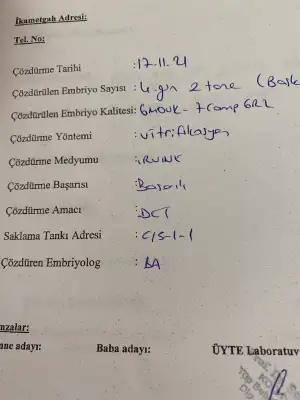 İkametgah Adresi:
Tel. No:
Çözdürme Tarihi :17.11.21
Çözdürülen Embriyo Sayısı : 4.gün 2 tane (Başk
Çözdürülen Embriyo Kalitesi: 6M0UK - 7comp GR2
Çözdürme Yöntemi : vitrifikasyon
Çözdürme Medyumu : İRVINE
Çözdürme Başarısı : Başarılı
Çözdürme Amacı : DCT
Saklama Tankı Adresi : C/S-1-1
Çözdüren Embriyolog : BA
mzalar:
nne adayı: Baba adayı: ÜYTE Laboratuv